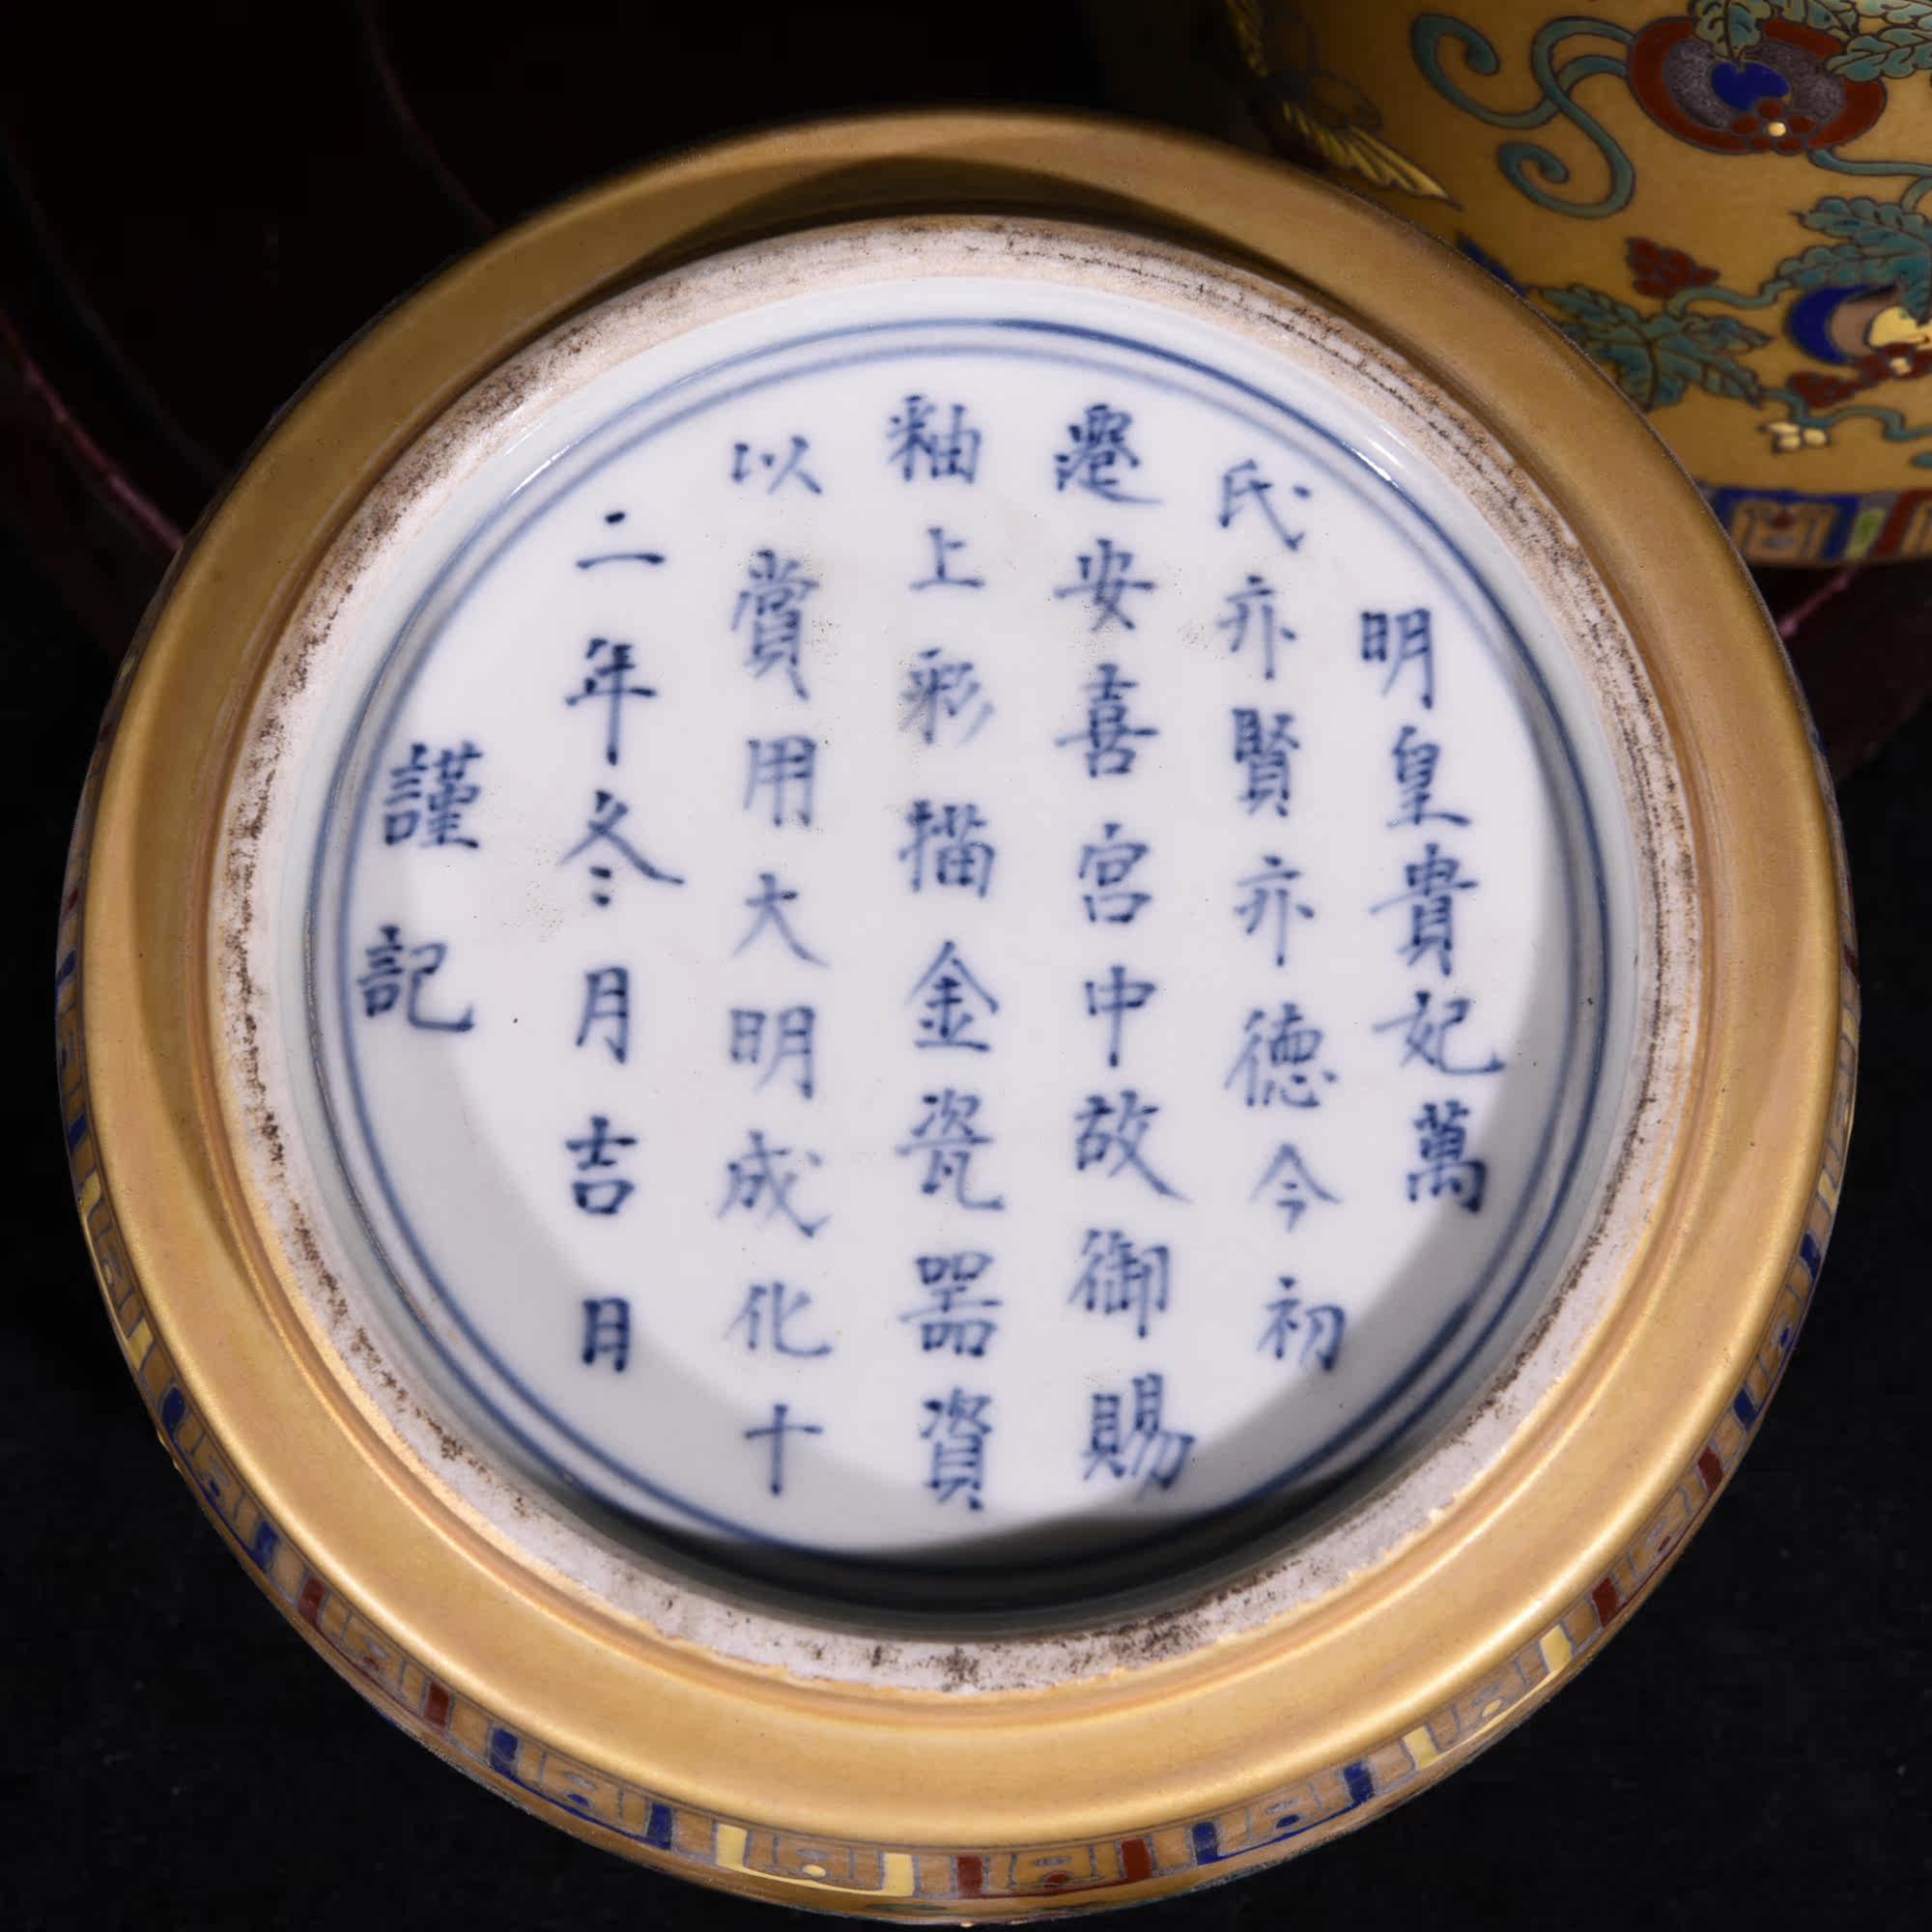 明皇貴妃萬
氏亦賢亦德今初
遷安喜宮中故御賜
釉上彩描金瓷器資
以賞用大明成化十
二年冬月吉日
謹記